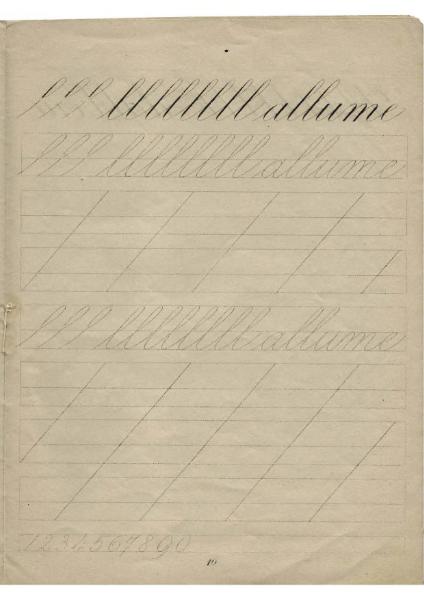 lll lllllllll allume
lll lllllllll allume
lll lllllllll allume
1234567890
10